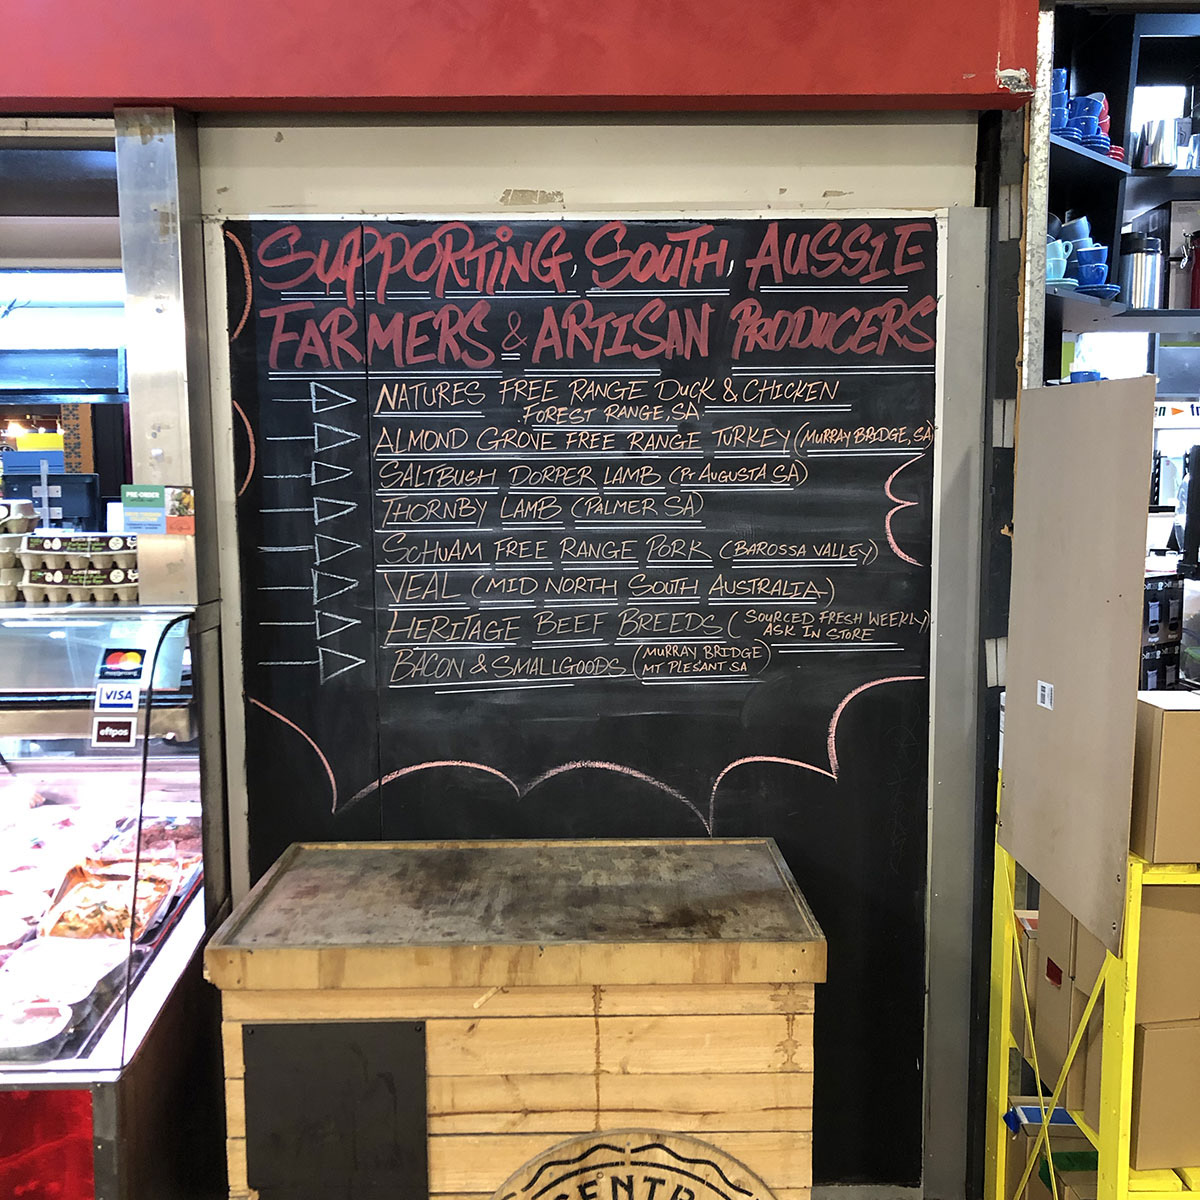 SUPPORTING SOUTH AUSSIE
FARMERS & ARTISAN PRODUCERS
NATURES FREE RANGE DUCK & CHICKEN
FOREST RANGE, SA
ALMOND GROVE FREE RANGE TURKEY (MURRAY BRIDGE, SA)
SALTBUSH DORPER LAMB (PT AUGUSTA SA)
THORNBY LAMB (PALMER SA)
SCHUAM FREE RANGE PORK (BAROSSA VALLEY)
VEAL (MID NORTH SOUTH AUSTRALIA)
HERITAGE BEEF BREEDS (SOURCED FRESH WEEKLY)
ASK IN STORE
BACON & SMALLGOODS (MURRAY BRIDGE
MT PLESANT SA)
PRE-ORDER
mastercard
VISA
eftpos
CENTR